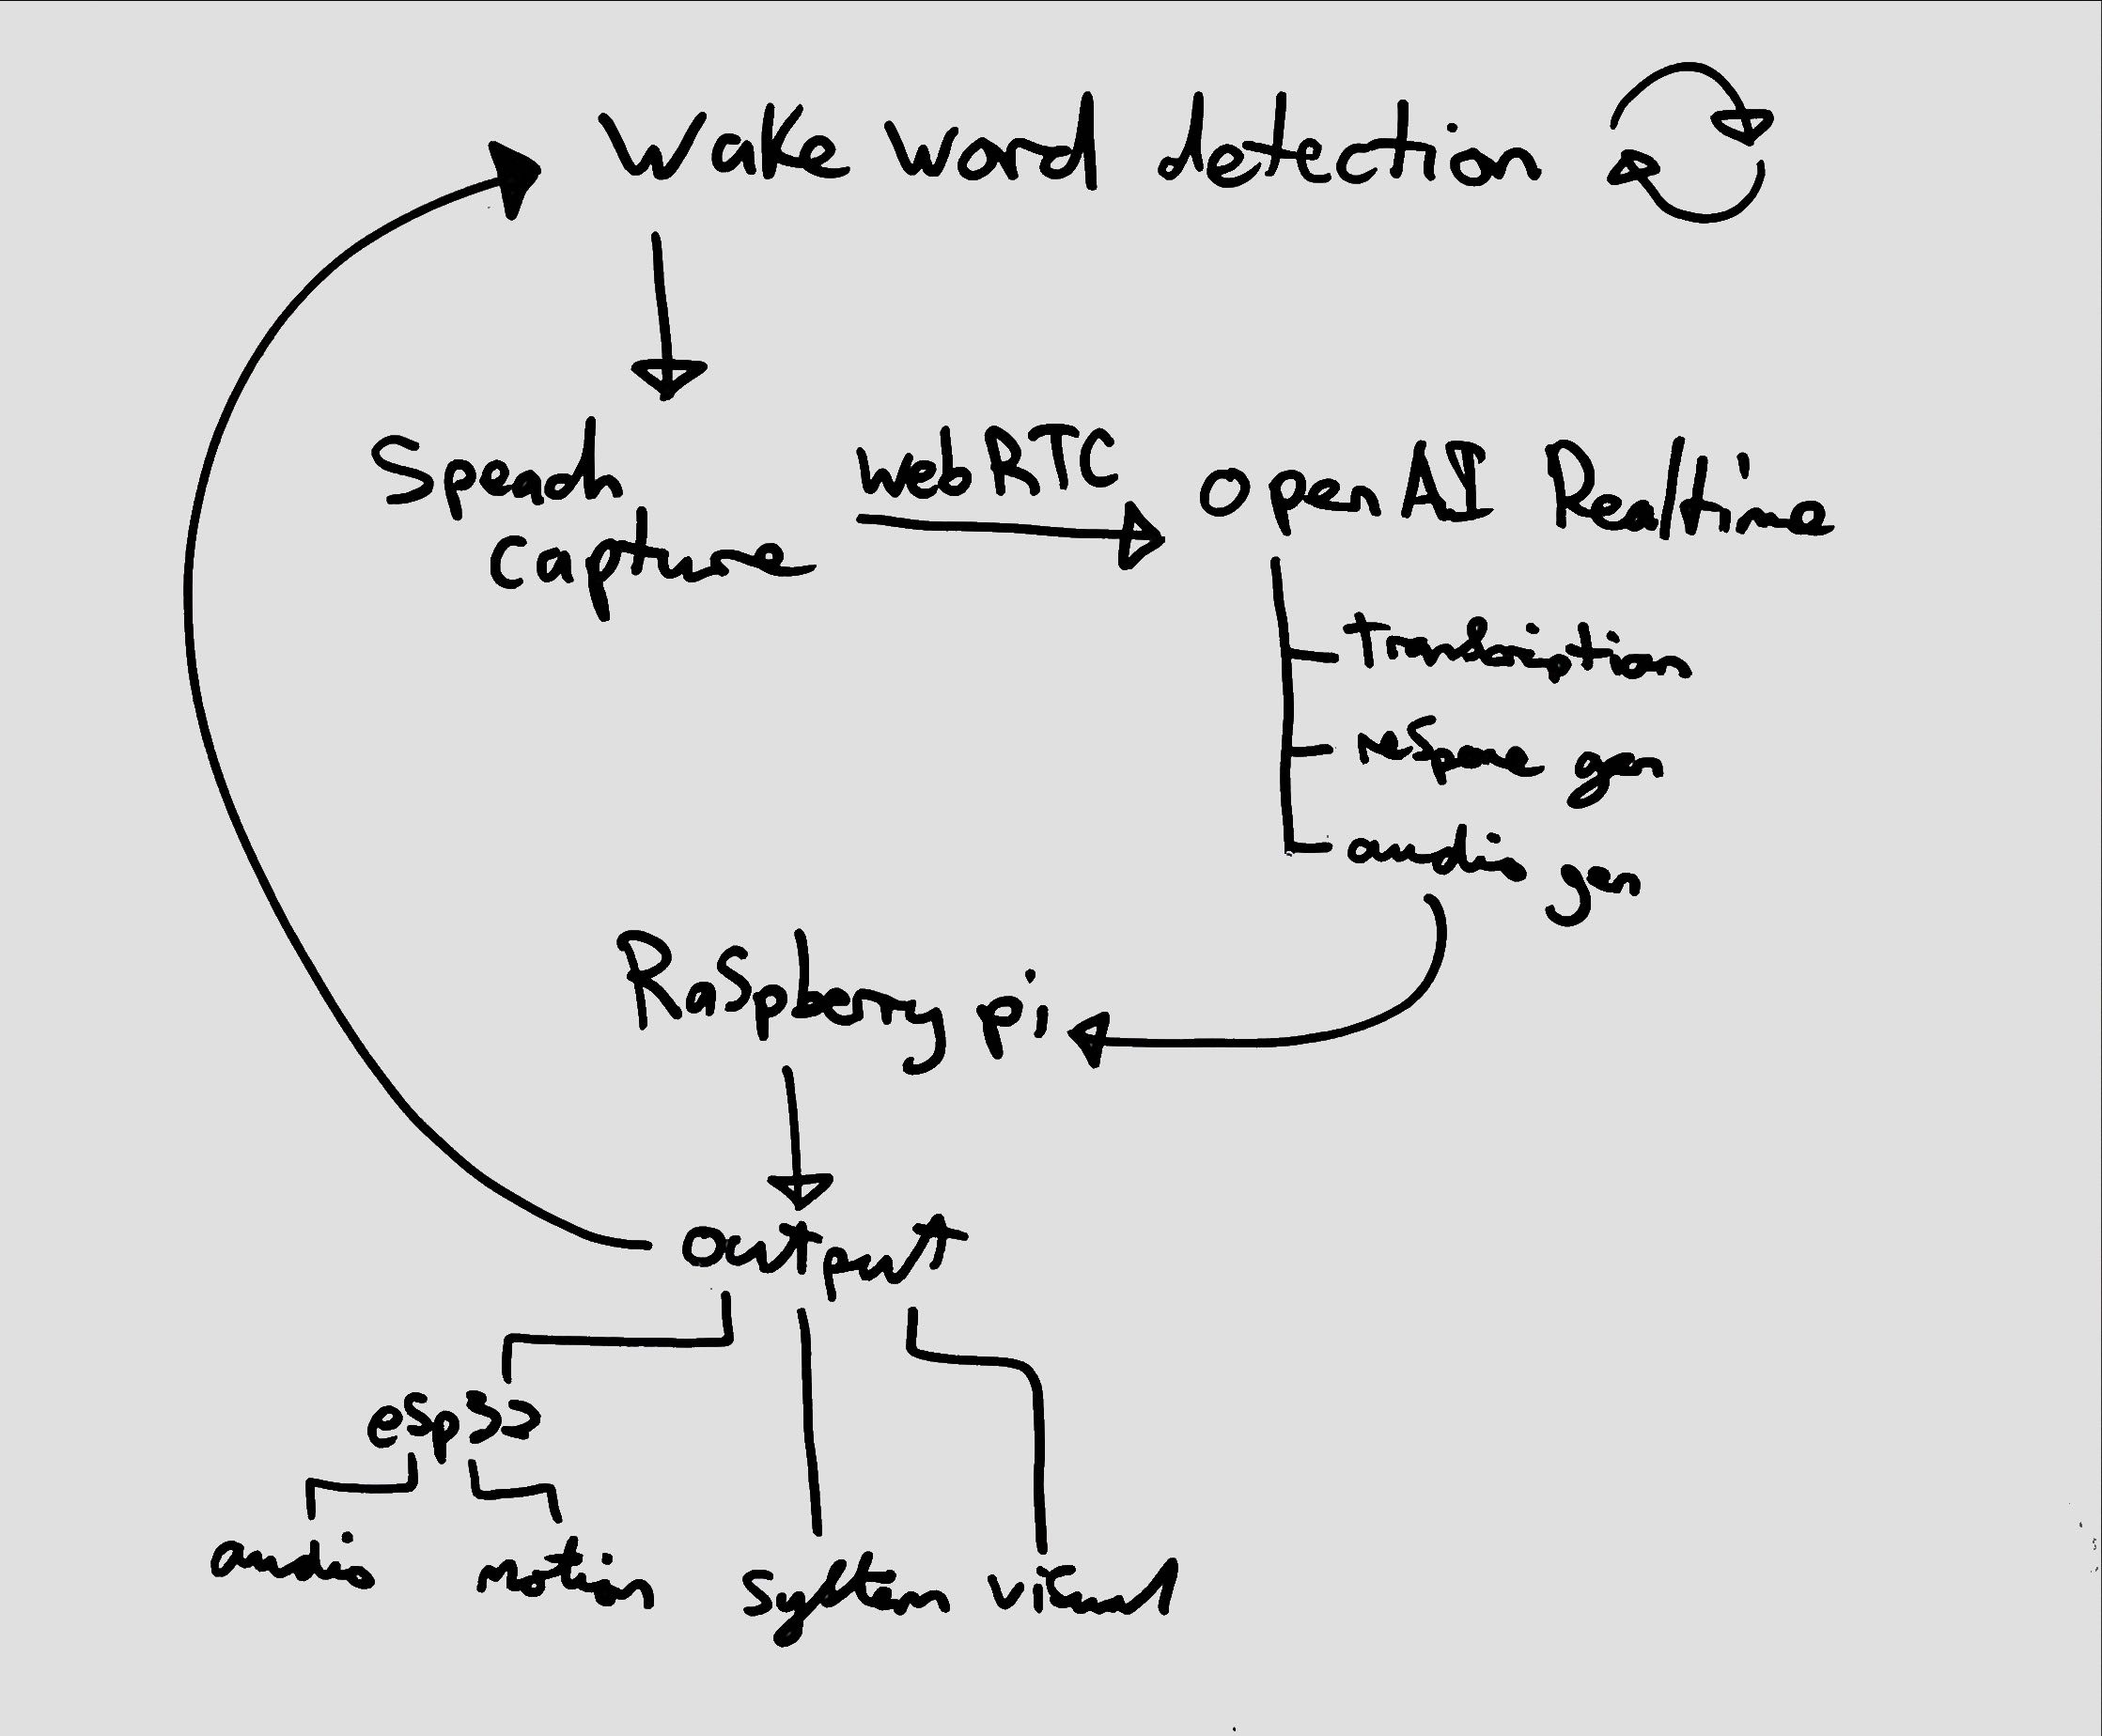 Wake word detection
Speach
capture
WebRTC
OpenAI Realtime
transcription
response gen
audio gen
Raspberry pi
output
esp32
audio
motion
system
visual